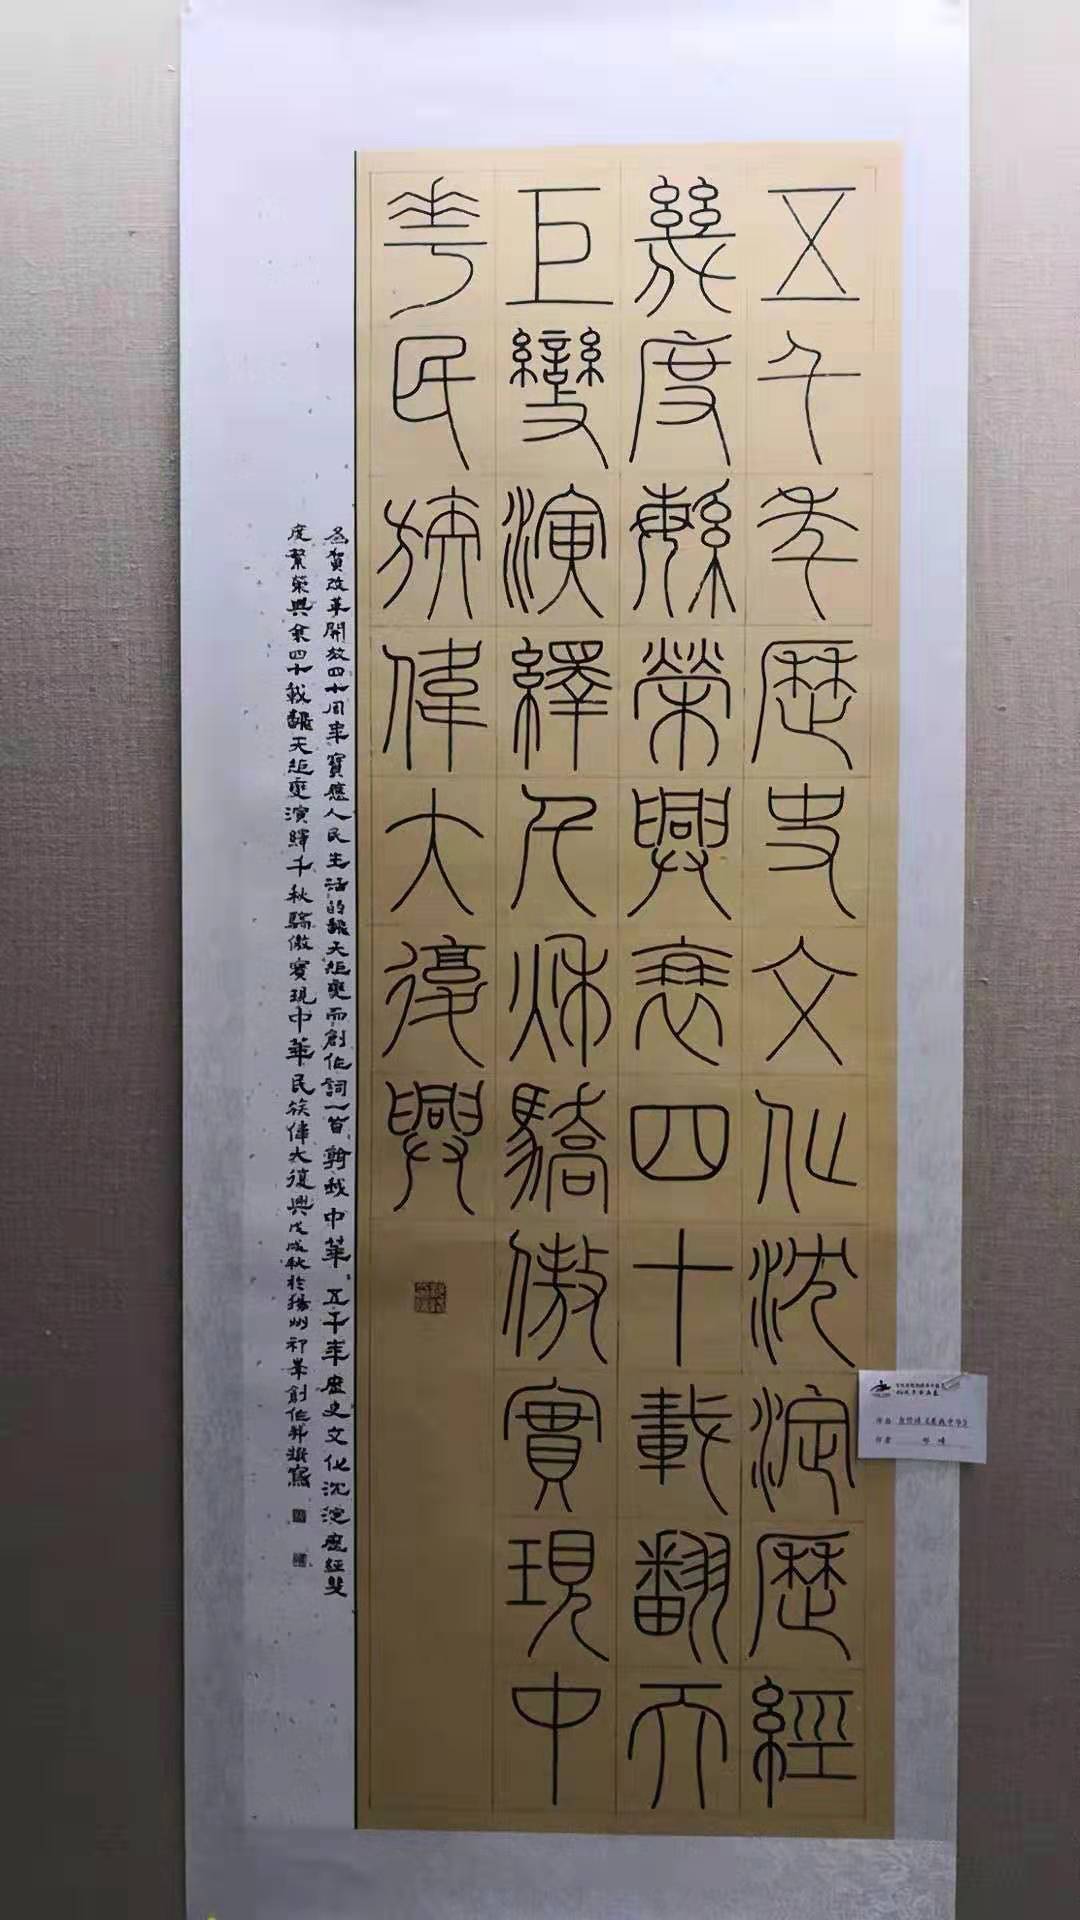 五千年歷史文化沈淀歷經
幾度繁榮興衰四十載翻天
巨變演繹千秋驕傲實現中
華民族偉大復興
為賀改革開放四十周年寶應人民生活的翻天矩變而創作詞一首 我中華 五千年歷史文化沉淀歷經幾
度繁榮興衰四十載翻天矩變演繹千秋驕傲實現中華民族偉大復興戊戌秋於揚州祁峯創作並撰寫